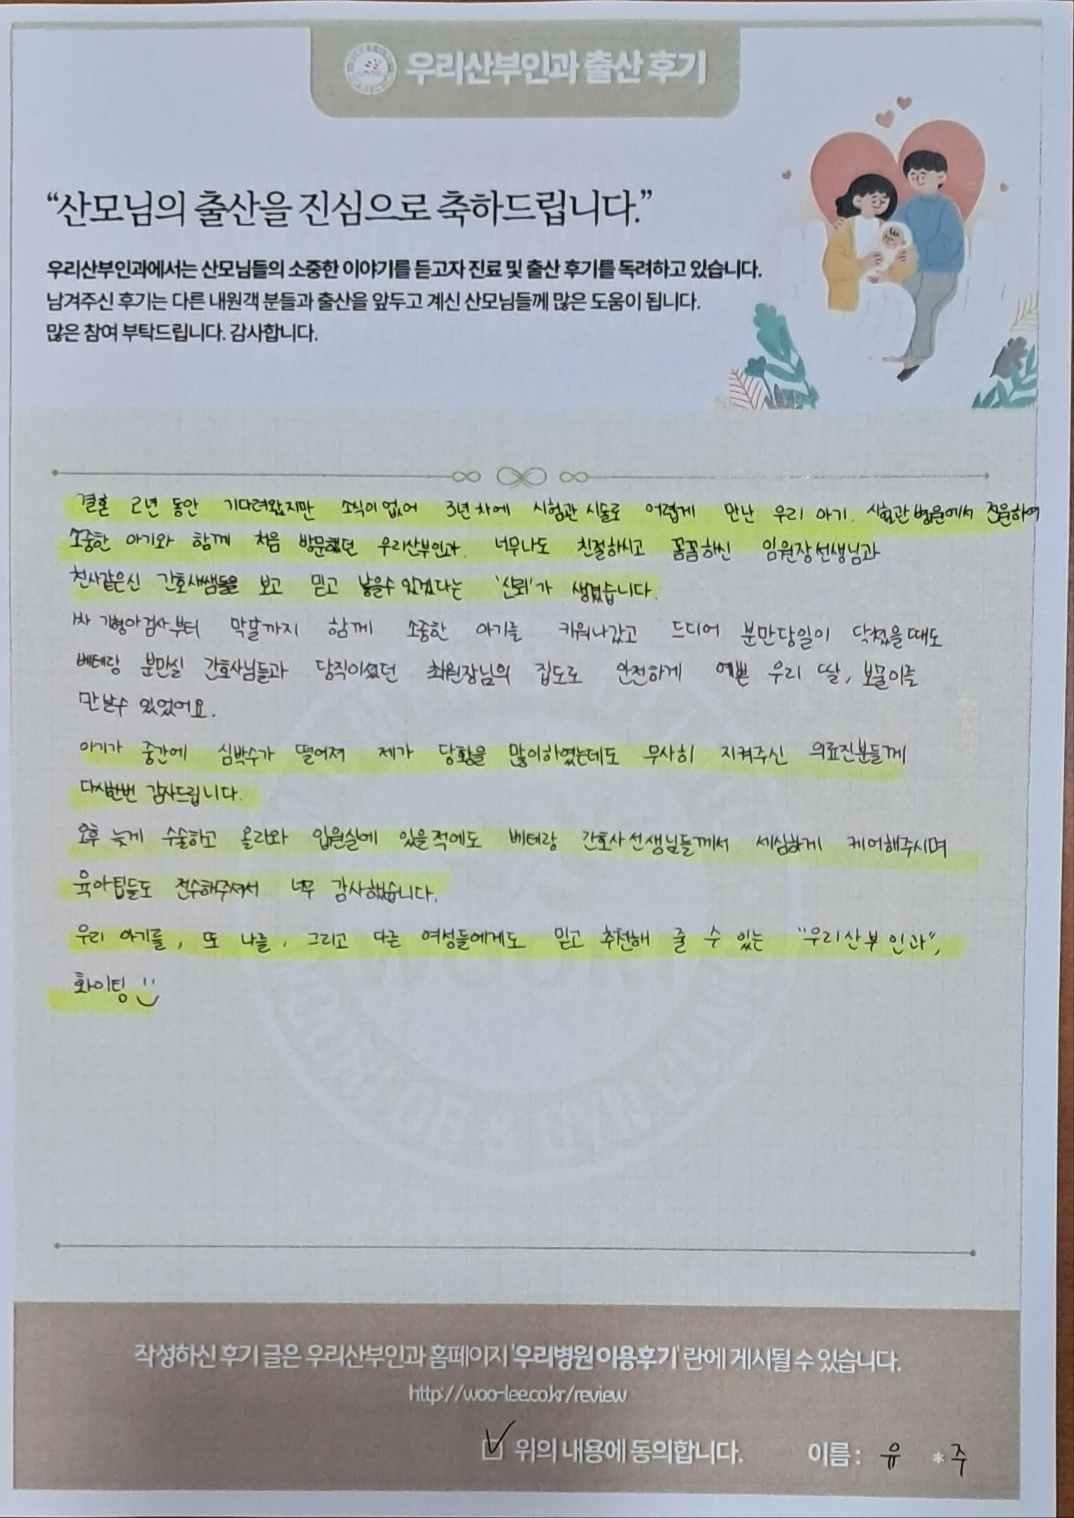 우리산부인과 출산 후기
“산모님의 출산을 진심으로 축하드립니다.”
우리산부인과에서는 산모님들의 소중한 이야기를 듣고자 진료 및 출산 후기를 독려하고 있습니다.
남겨주신 후기는 다른 내원객 분들과 출산을 앞두고 계신 산모님들께 많은 도움이 됩니다.
많은 참여 부탁드립니다. 감사합니다.
결혼 2년 동안 기다려왔지만 소식이 없어 3년차에 시험관 시술로 어렵게 만난 우리 아기. 시험관 병원에서 전원하여
소중한 아기와 함께 처음 방문했던 우리산부인과. 너무나도 친절하시고 꼼꼼하신 임원장선생님과
천사같은신 간호새쌤들을 보고 믿고 낳을수 있겠다는 '신뢰'가 생겼습니다.
1차 기형아검사부터 막달까지 함께 소중한 아기를 키워나갔고 드디어 분만당일이 닥쳤을때도
베테랑 분만실 간호사님들과 당직이셨던 최원장님의 집도로 안전하게 예쁜 우리 딸, 보물이를
만날수 있었어요.
아기가 중간에 심박수가 떨어져 제가 당황을 많이하였는데도 무사히 지켜주신 의료진분들께
다시한번 감사드립니다.
오후 늦게 수술하고 올라와 입원실에 있을적에도 베테랑 간호사선생님들께서 세심하게 케어해주시며
육아팁들도 전수해주셔서 너무 감사했습니다.
우리 아기를, 또 나를, 그리고 다른 여성들에게도 믿고 추천해 줄 수 있는 "우리산부인과",
화이팅
작성하신 후기 글은 우리산부인과 홈페이지 '우리병원 이용후기' 란에 게시될 수 있습니다.
http://woo-lee.co.kr/review
위의 내용에 동의합니다. 이름 : 유 * 주